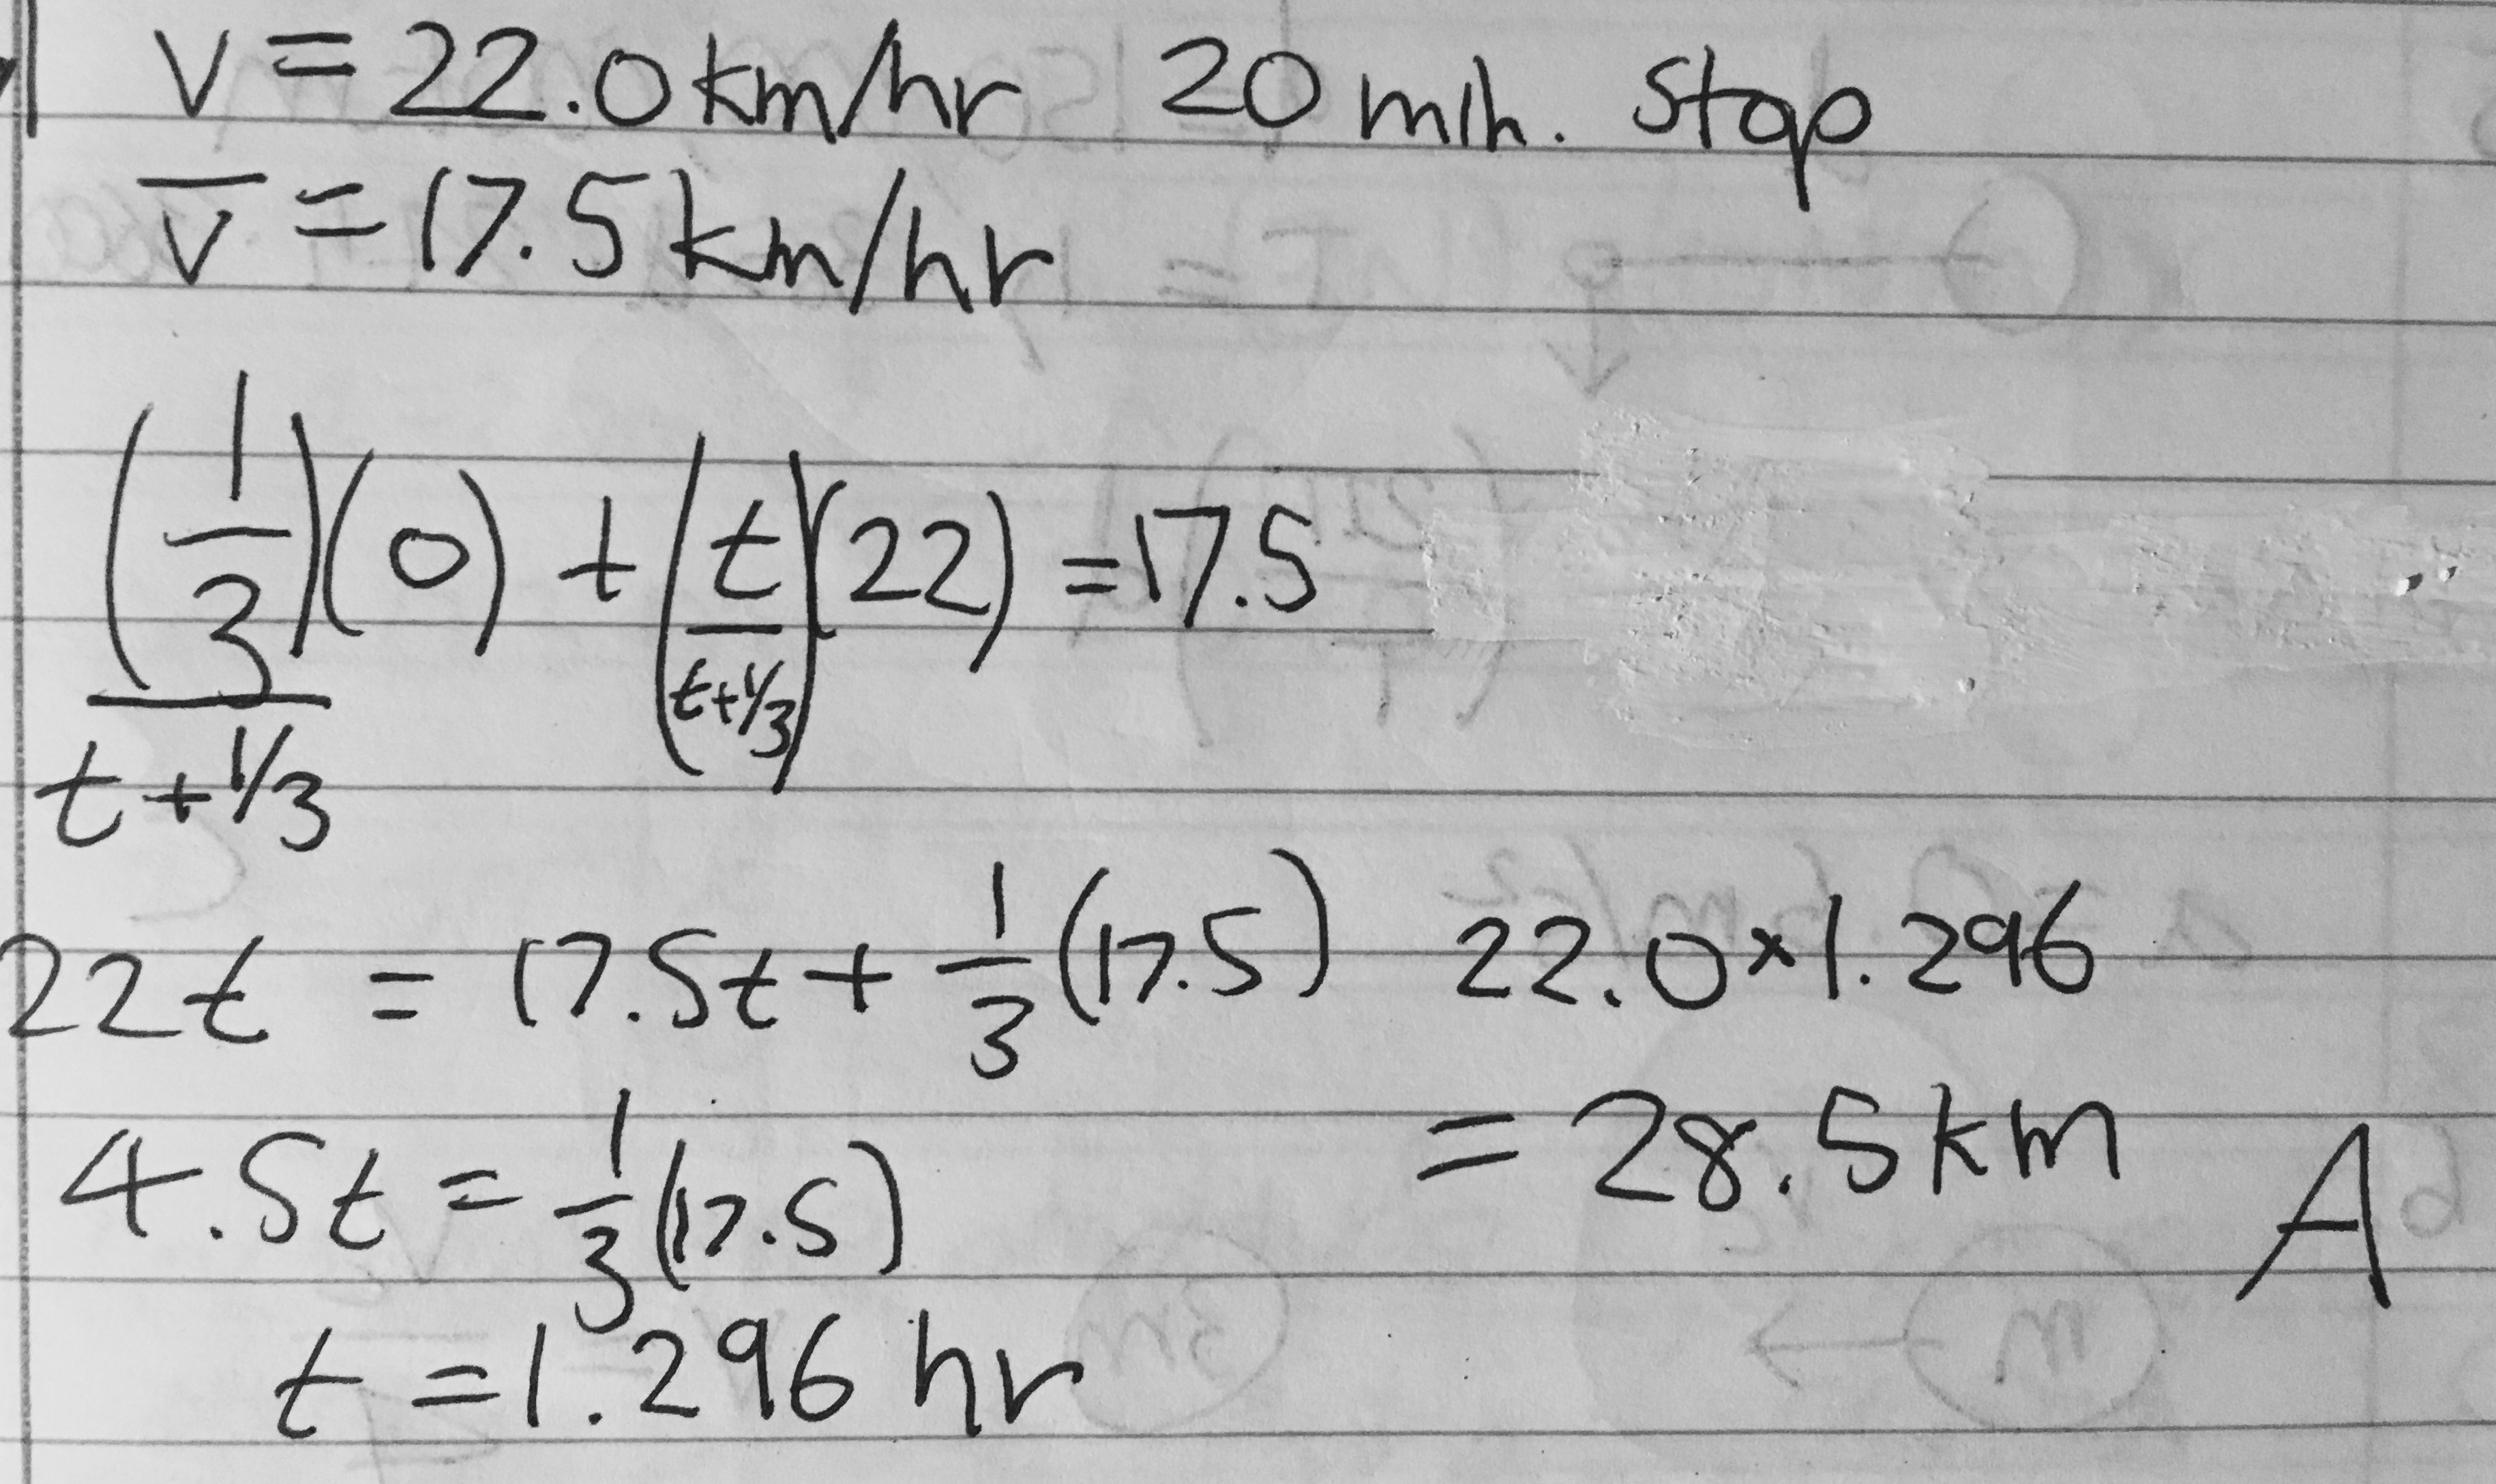 v = 22.0 km/hr 20 min. stop
v̅ = 17.5 km/hr
(1/3)/(t + 1/3) (0) + (t/(t+1/3))(22) = 17.5
22t = 17.5t + 1/3 (17.5) 22.0 × 1.296
4.5t = 1/3 (17.5) = 28.5 km A
t = 1.296 hr